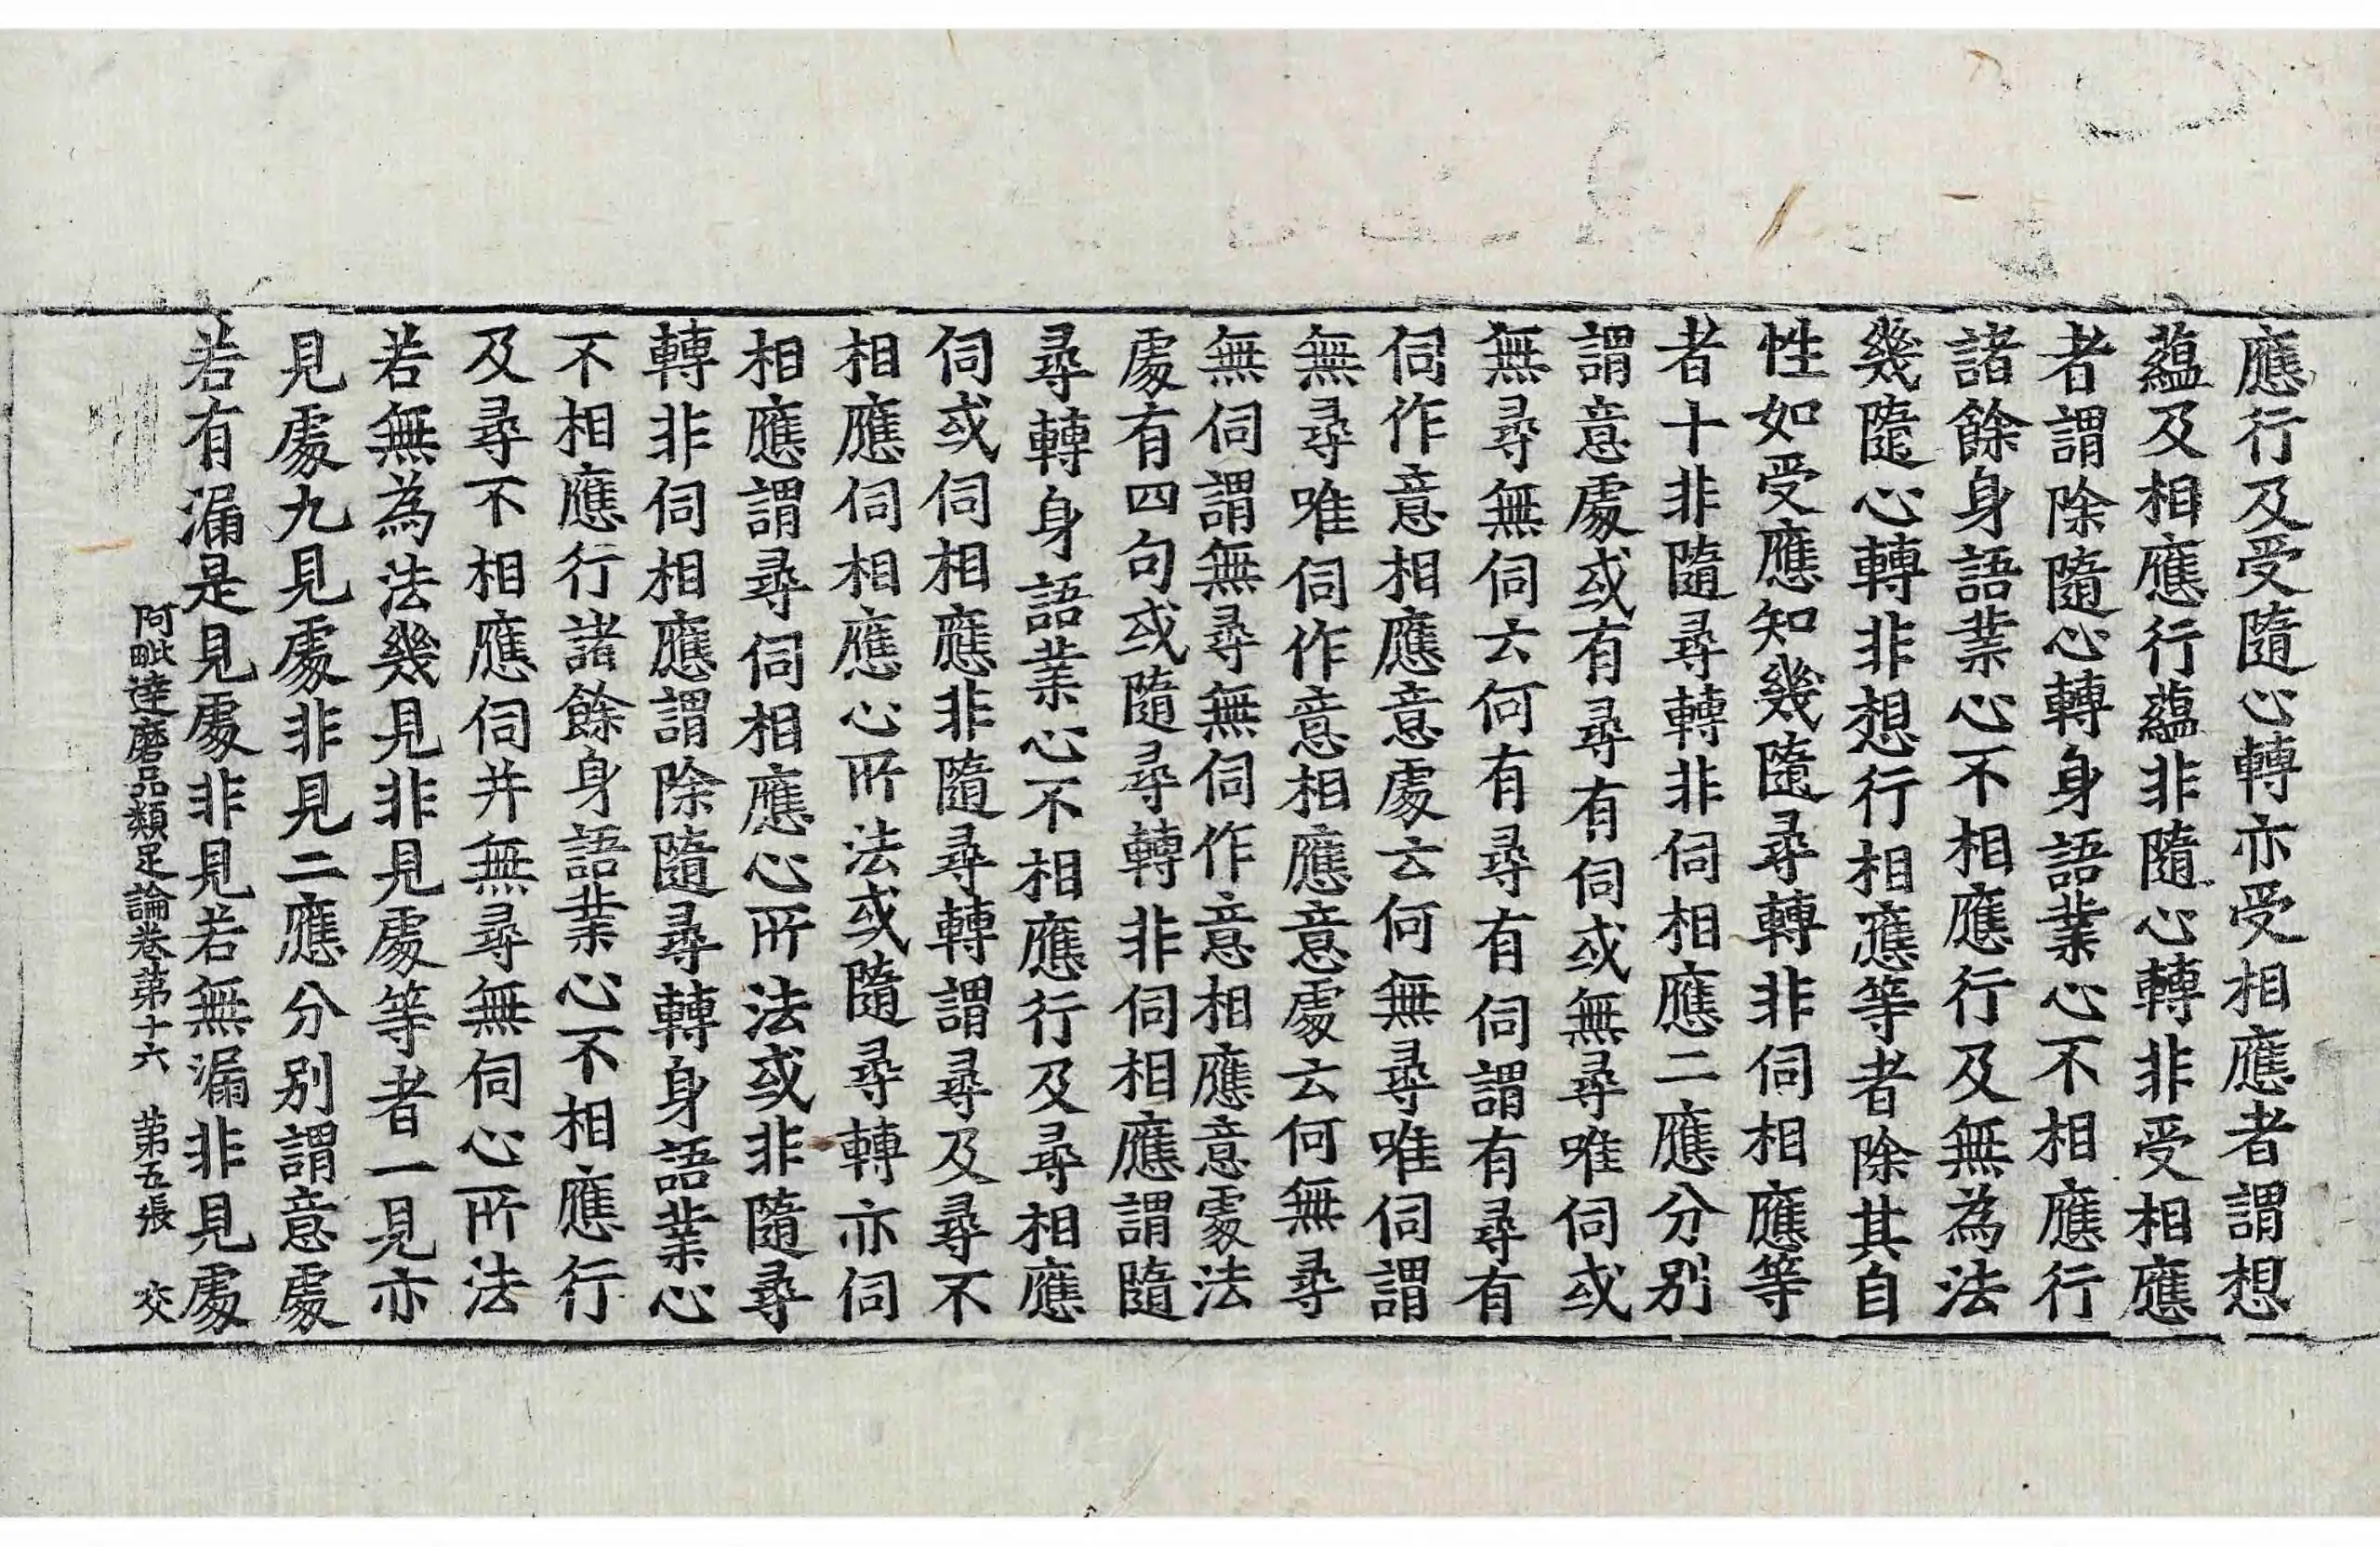 應行及受隨心轉亦受相應者謂想
蘊及相應行蘊非隨心轉非受相應
者謂除隨心轉身語業心不相應行
諸餘身語業心不相應行及無為法
幾隨心轉非想行相應等者除其自
性如受應知幾隨尋轉非伺相應等
者十非隨尋轉非伺相應二應分別
謂意處或有尋有伺或無尋唯伺或
無尋無伺云何有尋有伺謂有尋有
伺作意相應意處云何無尋唯伺謂
無尋唯伺作意相應意處云何無尋
無伺謂無尋無伺作意相應意處法
處有四句或隨尋轉非伺相應謂隨
尋轉身語業心不相應行及尋相應
伺或伺相應非隨尋轉謂尋及尋不
相應伺相應心所法或隨尋轉亦伺
相應謂尋伺相應心所法或非隨尋
轉非伺相應謂除隨尋轉身語業心
不相應行諸餘身語業心不相應行
及尋不相應伺并無尋無伺心所法
若無為法幾見非見處等者一見亦
見處九見處非見二應分別謂意處
若有漏是見處非見若無漏非見處
阿毗達磨品類足論卷第十六 第五張 交